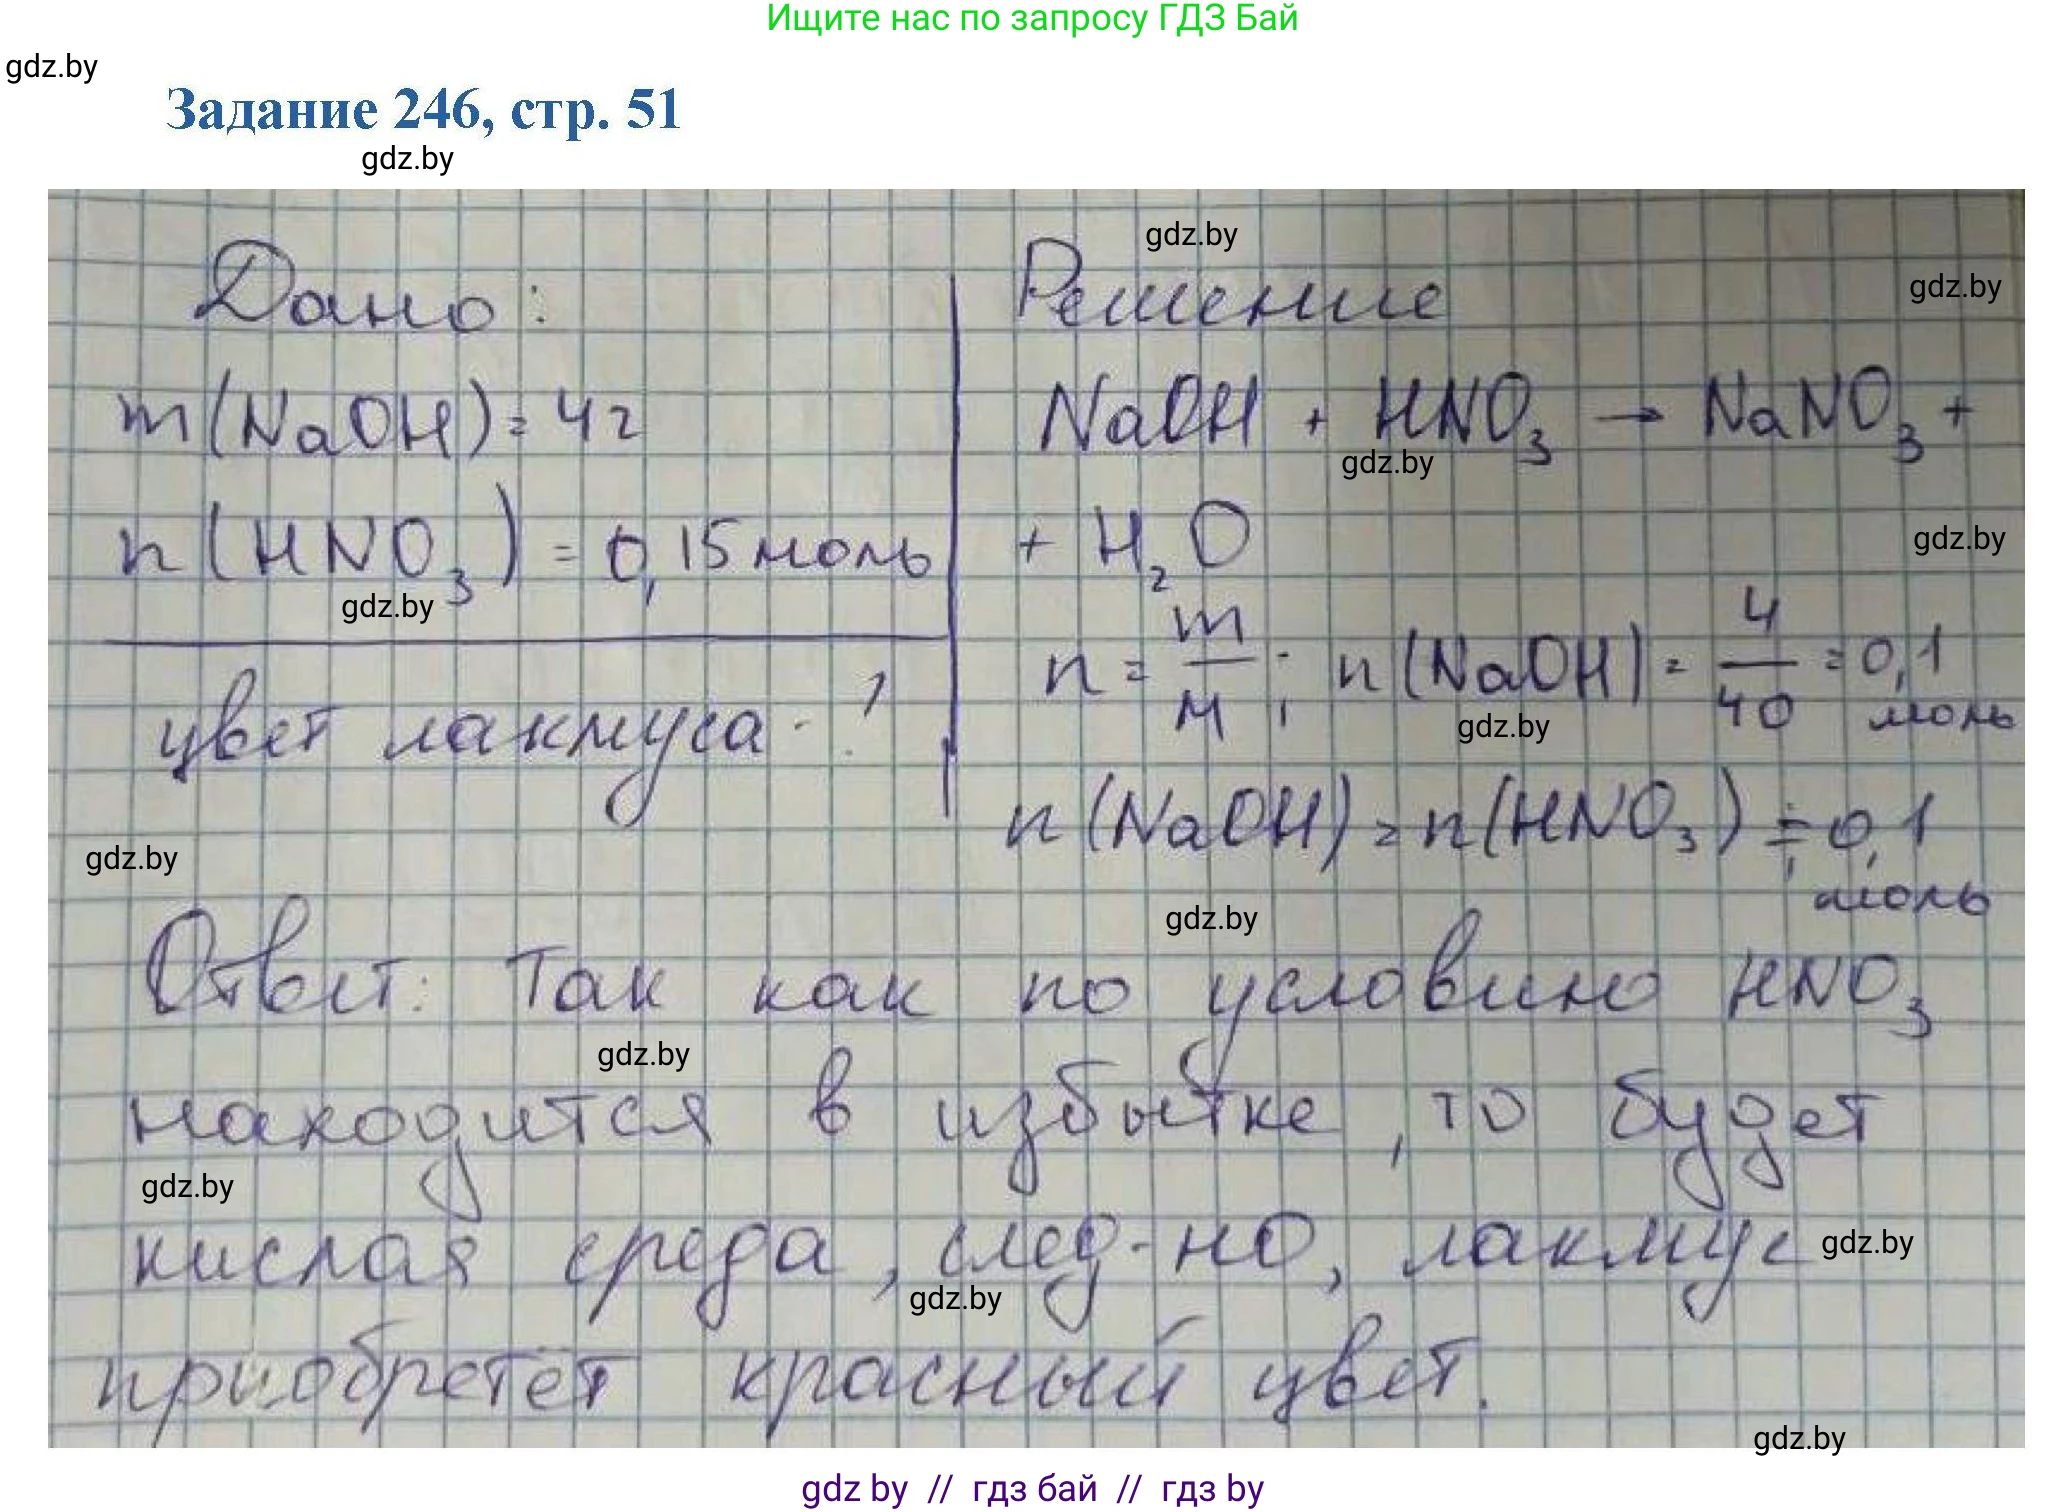 Ищите нас по запросу ГДЗ Бай
gdz.by
Задание 246, стр. 51
gdz.by
gdz.by
gdz.by
Дано:
m(NaOH) = 4г
n(HNO₃) = 0,15 моль
gdz.by
цвет лакмуса - ?
Решение
NaOH + HNO₃ → NaNO₃ +
gdz.by
+ H₂O
gdz.by
n = m/M; n(NaOH) = 4/40 = 0,1 моль
gdz.by
n(NaOH) = n(HNO₃) = 0,1 моль
gdz.by
gdz.by
Ответ: Так как по условию HNO₃
gdz.by
находится в избытке, то будет
gdz.by
кислая среда, след-но, лакмус
gdz.by
gdz.by
приобретёт красный цвет.
gdz.by
gdz by // гдз бай // гдз by